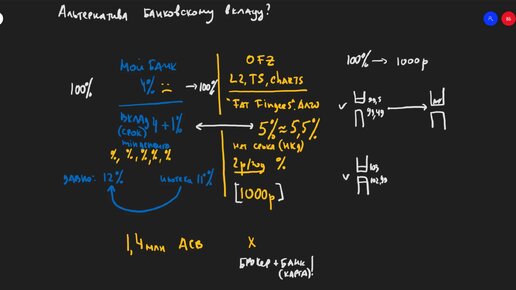 Альтернатива Банковскому вкладу?
Мой Банк
4%
100%
100%
вклад 4+1%
(срок)
%, %, %, %, %
давно: 12%
ипотека 11%
OFZ
L2, TS, CHARTS
"FAT Fingers"
5% ÷ 5,5%
нет срока (НКД)
2р/год %
[1000р]
100% → 1000р
99,5
99,49
103
102,99
1,4 млн АСВ
X
Брокер + Банк!
(карта)